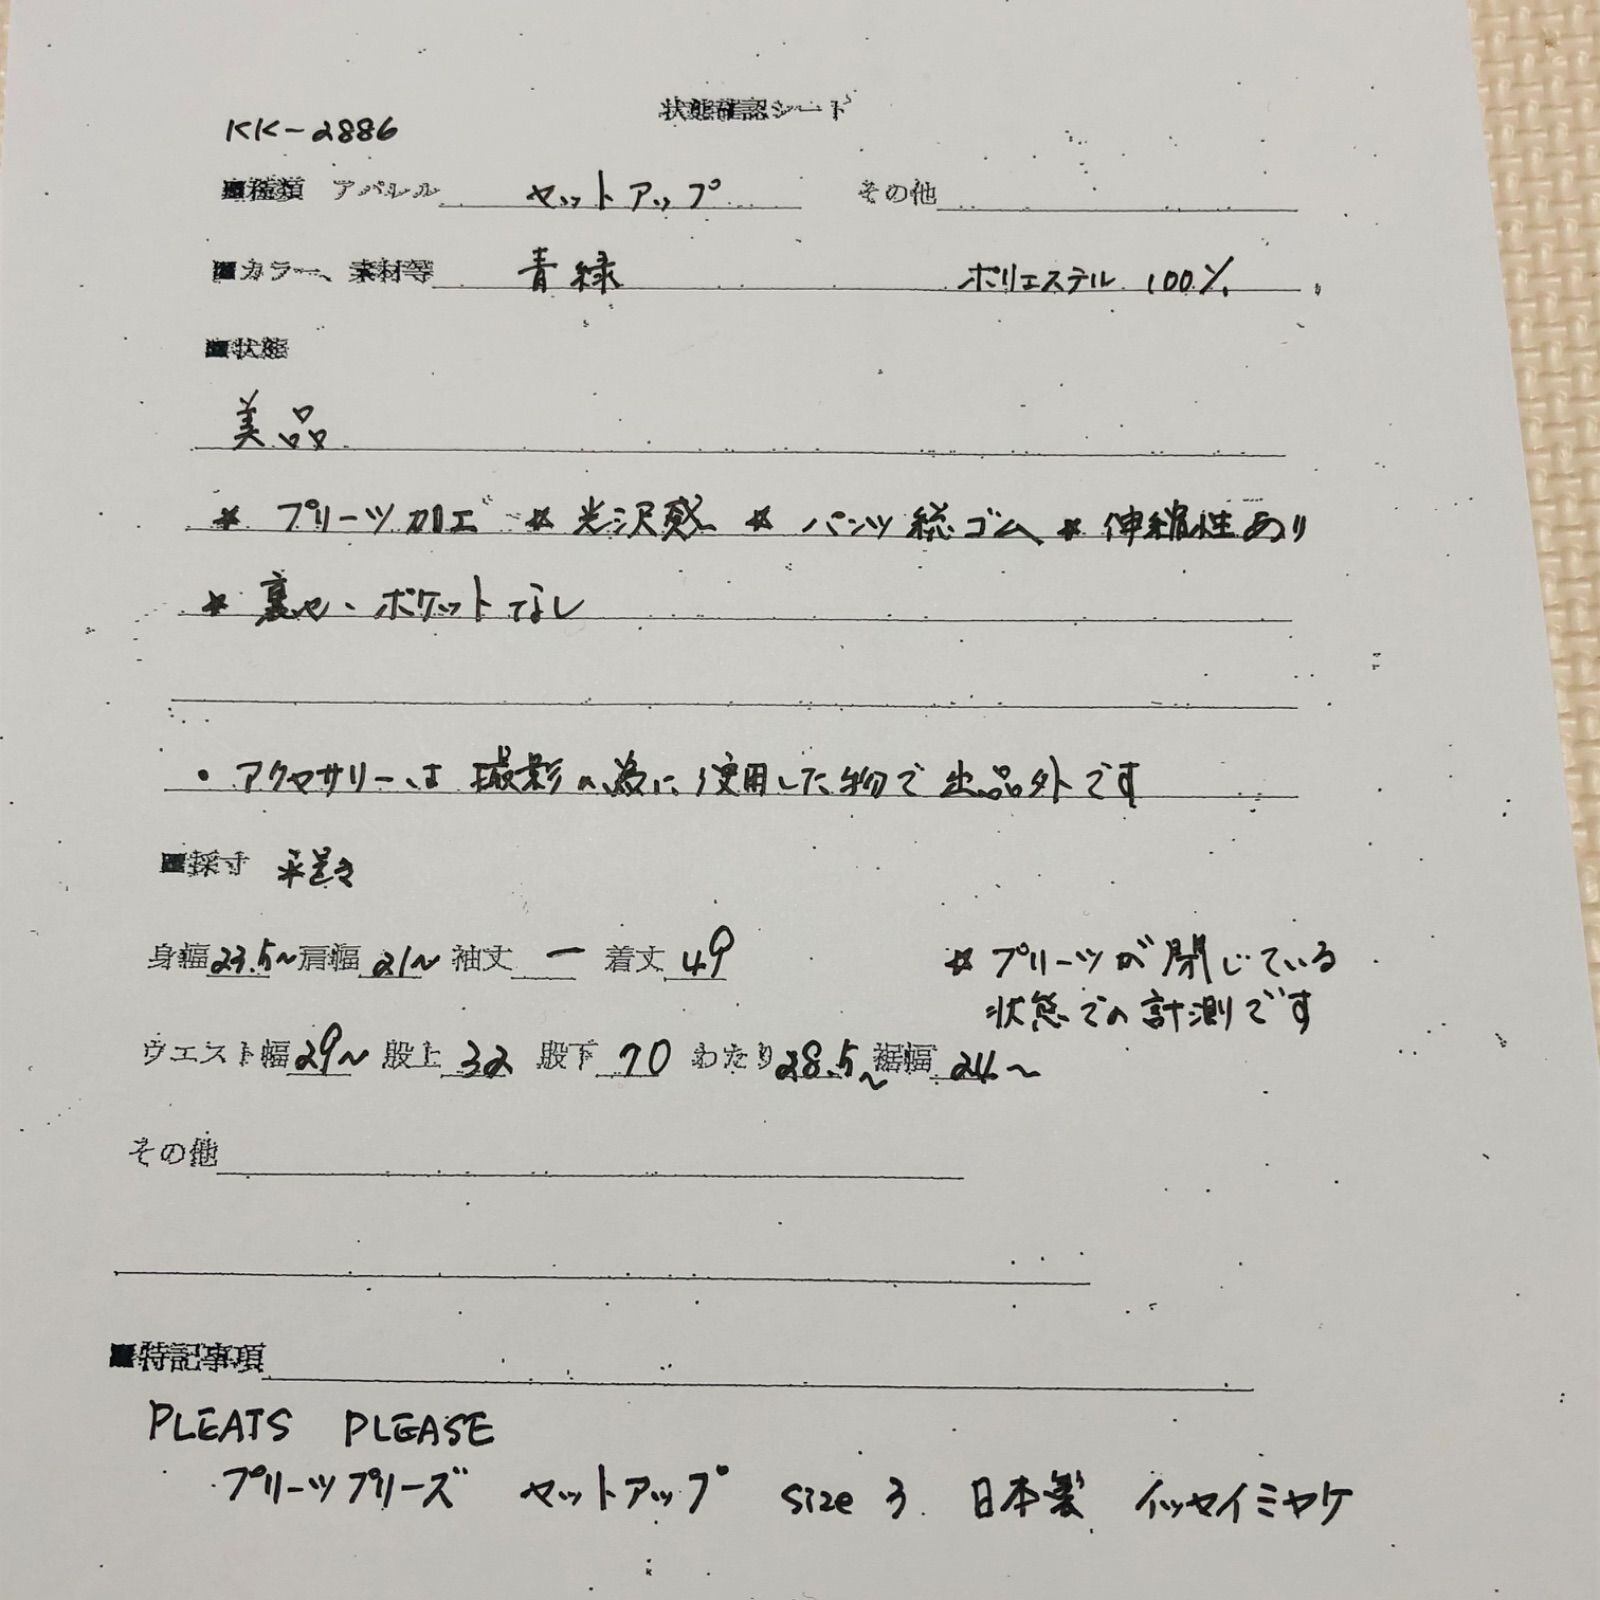 状態確認シート
KK-2886
■種類 アパレル セットアップ その他
■カラー、素材等 青緑 ポリエステル 100%
■状態
美品
* プリーツ加工 * 光沢感 * パンツ総ゴム * 伸縮性あり
* 裏地・ポケットなし
・アクセサリーは撮影の為に使用した物で出品外です
■採寸 平置き
身幅23.5~肩幅21~ 袖丈 ー 着丈49
* プリーツが閉じている
状態での計測です
ウエスト幅29~ 股上32 股下70 わたり28.5~裾幅24~
その他
■特記事項
PLEATS PLEASE
プリーツプリーズ セットアップ size 3 日本製 イッセイミヤケ